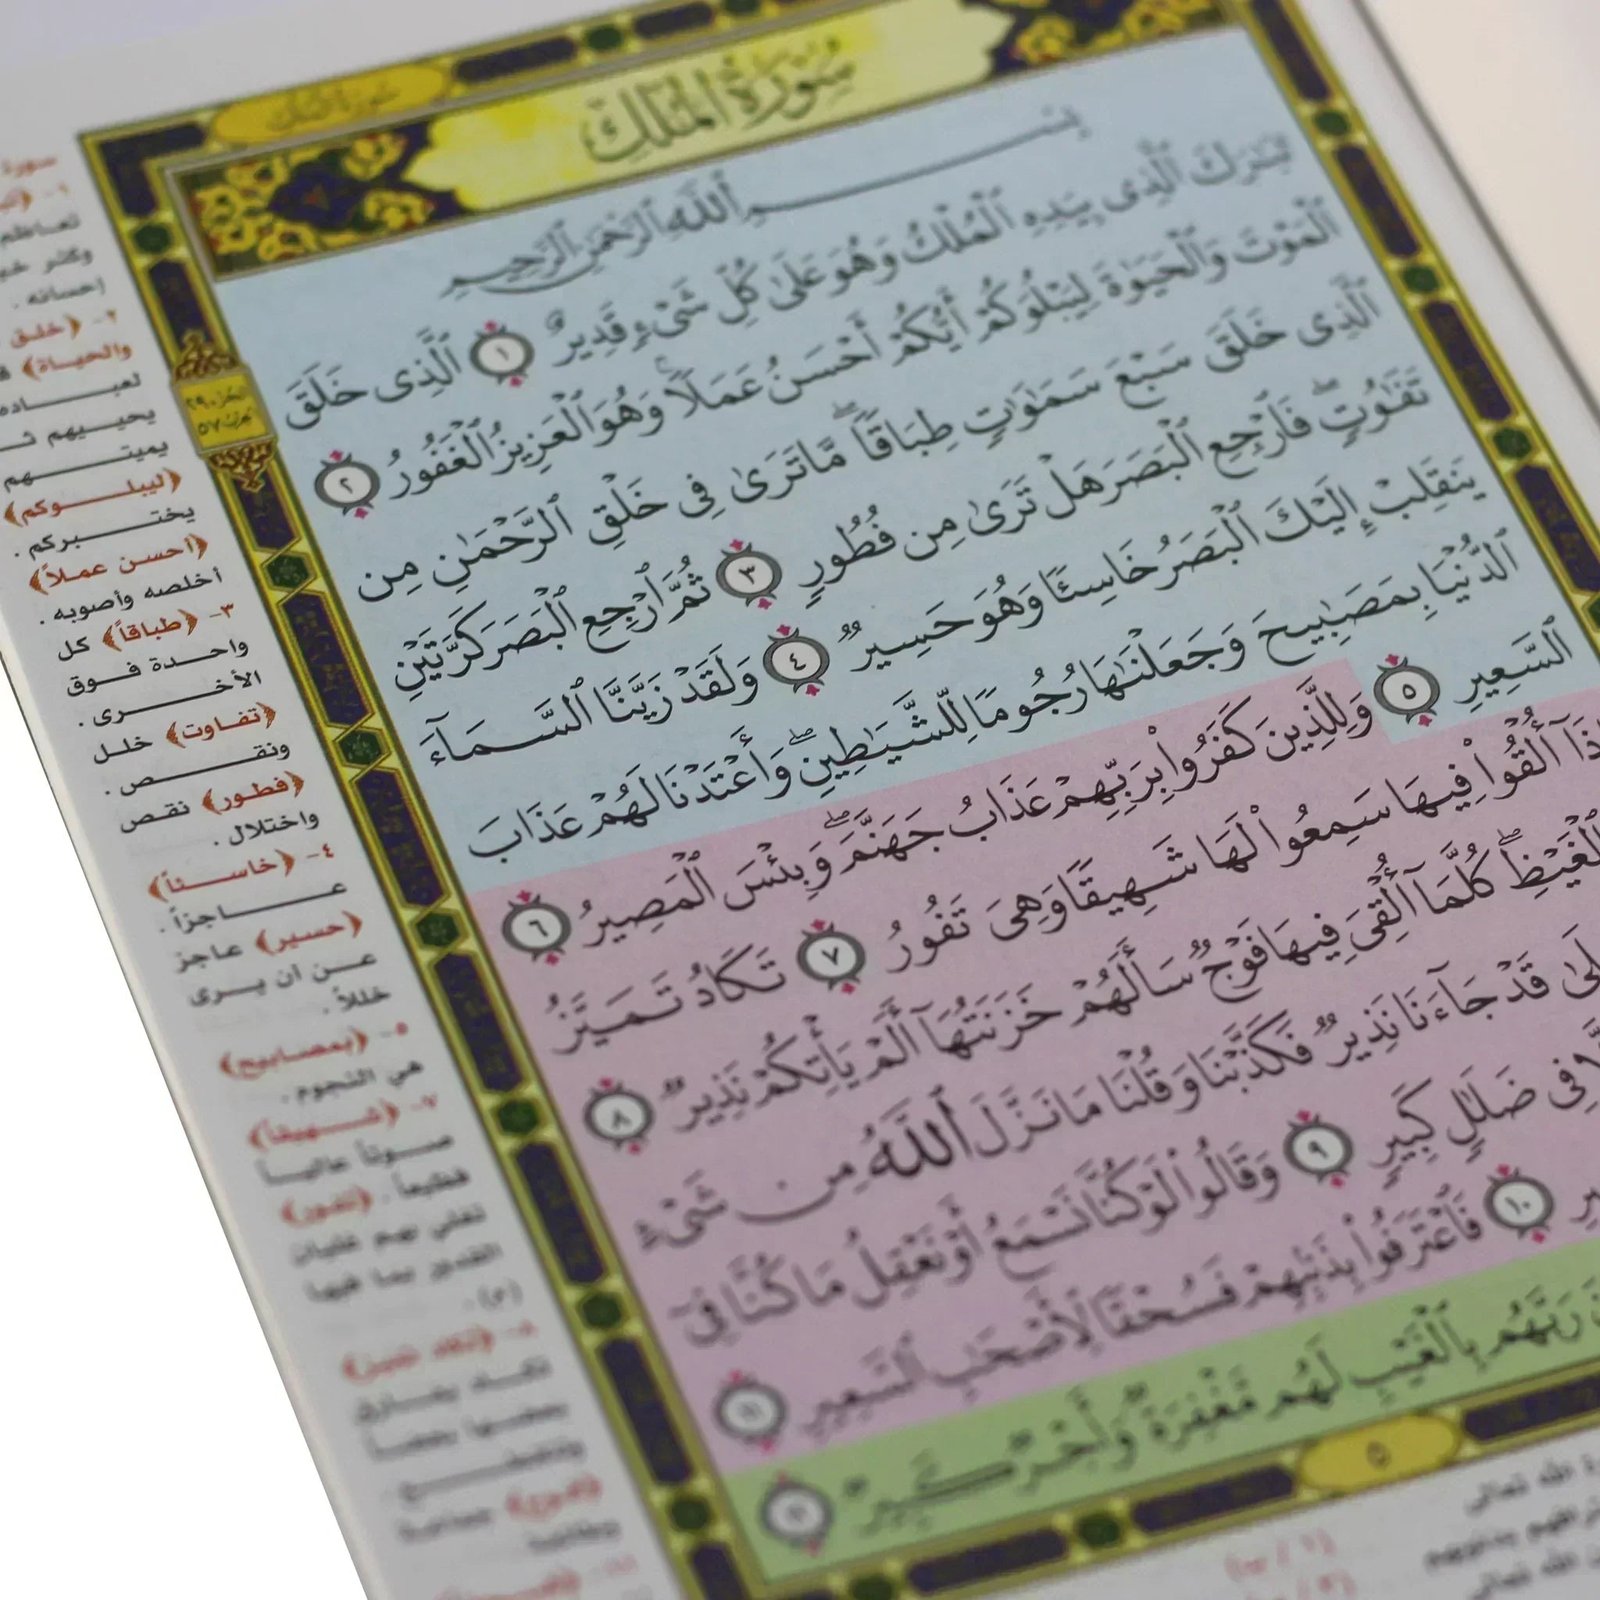 سورة الملك
بسم الله الرحمن الرحيم
تَبَٰرَكَ ٱلَّذِى بِيَدِهِ ٱلْمُلْكُ وَهُوَ عَلَىٰ كُلِّ شَىْءٍ قَدِيرٌ ١ ٱلَّذِى خَلَقَ
ٱلْمَوْتَ وَٱلْحَيَوٰةَ لِيَبْلُوَكُمْ أَيُّكُمْ أَحْسَنُ عَمَلًا ۚ وَهُوَ ٱلْعَزِيزُ ٱلْغَفُورُ ٢
ٱلَّذِى خَلَقَ سَبْعَ سَمَٰوَٰتٍ طِبَاقًا ۖ مَّا تَرَىٰ فِى خَلْقِ ٱلرَّحْمَٰنِ مِن
تَفَٰوُتٍ ۖ فَٱرْجِعِ ٱلْبَصَرَ هَلْ تَرَىٰ مِن فُطُورٍ ٣ ثُمَّ ٱرْجِعِ ٱلْبَصَرَ كَرَّتَيْنِ
يَنقَلِبْ إِلَيْكَ ٱلْبَصَرُ خَاسِئًا وَهُوَ حَسِيرٌ ٤ وَلَقَدْ زَيَّنَّا ٱلسَّمَآءَ
ٱلدُّنْيَا بِمَصَٰبِيحَ وَجَعَلْنَٰهَا رُجُومًا لِّلشَّيَٰطِينِ ۖ وَأَعْتَدْنَا لَهُمْ عَذَابَ
ٱلسَّعِيرِ ٥ وَلِلَّذِينَ كَفَرُوا۟ بِرَبِّهِمْ عَذَابُ جَهَنَّمَ ۖ وَبِئْسَ ٱلْمَصِيرُ ٦
أُلْقُوا۟ فِيهَا سَمِعُوا۟ لَهَا شَهِيقًا وَهِىَ تَفُورُ ٧ تَكَادُ تَمَيَّزُ
ٱلْغَيْظِ ۖ كُلَّمَآ أُلْقِىَ فِيهَا فَوْجٌ سَأَلَهُمْ خَزَنَتُهَآ أَلَمْ يَأْتِكُمْ نَذِيرٌ ٨
قَدْ جَآءَنَا نَذِيرٌ فَكَذَّبْنَا وَقُلْنَا مَا نَزَّلَ ٱللَّهُ مِن شَىْءٍ
فِى ضَلَٰلٍ كَبِيرٍ ٩ وَقَالُوا۟ لَوْ كُنَّا نَسْمَعُ أَوْ نَعْقِلُ مَا كُنَّا فِىٓ
١٠ فَٱعْتَرَفُوا۟ بِذَنۢبِهِمْ فَسُحْقًا لِّأَصْحَٰبِ ٱلسَّعِيرِ ١١
رَبَّهُم بِٱلْغَيْبِ لَهُم مَّغْفِرَةٌ وَأَجْرٌ كَبِيرٌ ١٢
٥
الجزء ٢٩
الحزب ٥٧
سورة
تعاظم
وكثر
إحسانه .
٢- ﴿خلق
والحياة﴾
يحييهم
يميتهم
﴿ليبلوكم﴾
يختبركم .
﴿أحسن عملاً﴾
أخلصه وأصوبه .
٣- ﴿طباقاً﴾ كل
واحدة فوق
الأخرى .
﴿تفاوت﴾ خلل
ونقص .
﴿فطور﴾ نقص
واختلال .
٤- ﴿خاسئاً﴾
عاجزاً .
﴿حسير﴾ عاجز
عن ان يرى
خللاً .
٥- ﴿بمصابيح﴾
هي النجوم .
٧- ﴿شهيقاً﴾
صوتاً عالياً
فظيعاً . ﴿تفور﴾
تغلي بهم غليان
القدير بما فيها
(م) .
٨- ﴿تكاد تميز﴾
الله تعالى